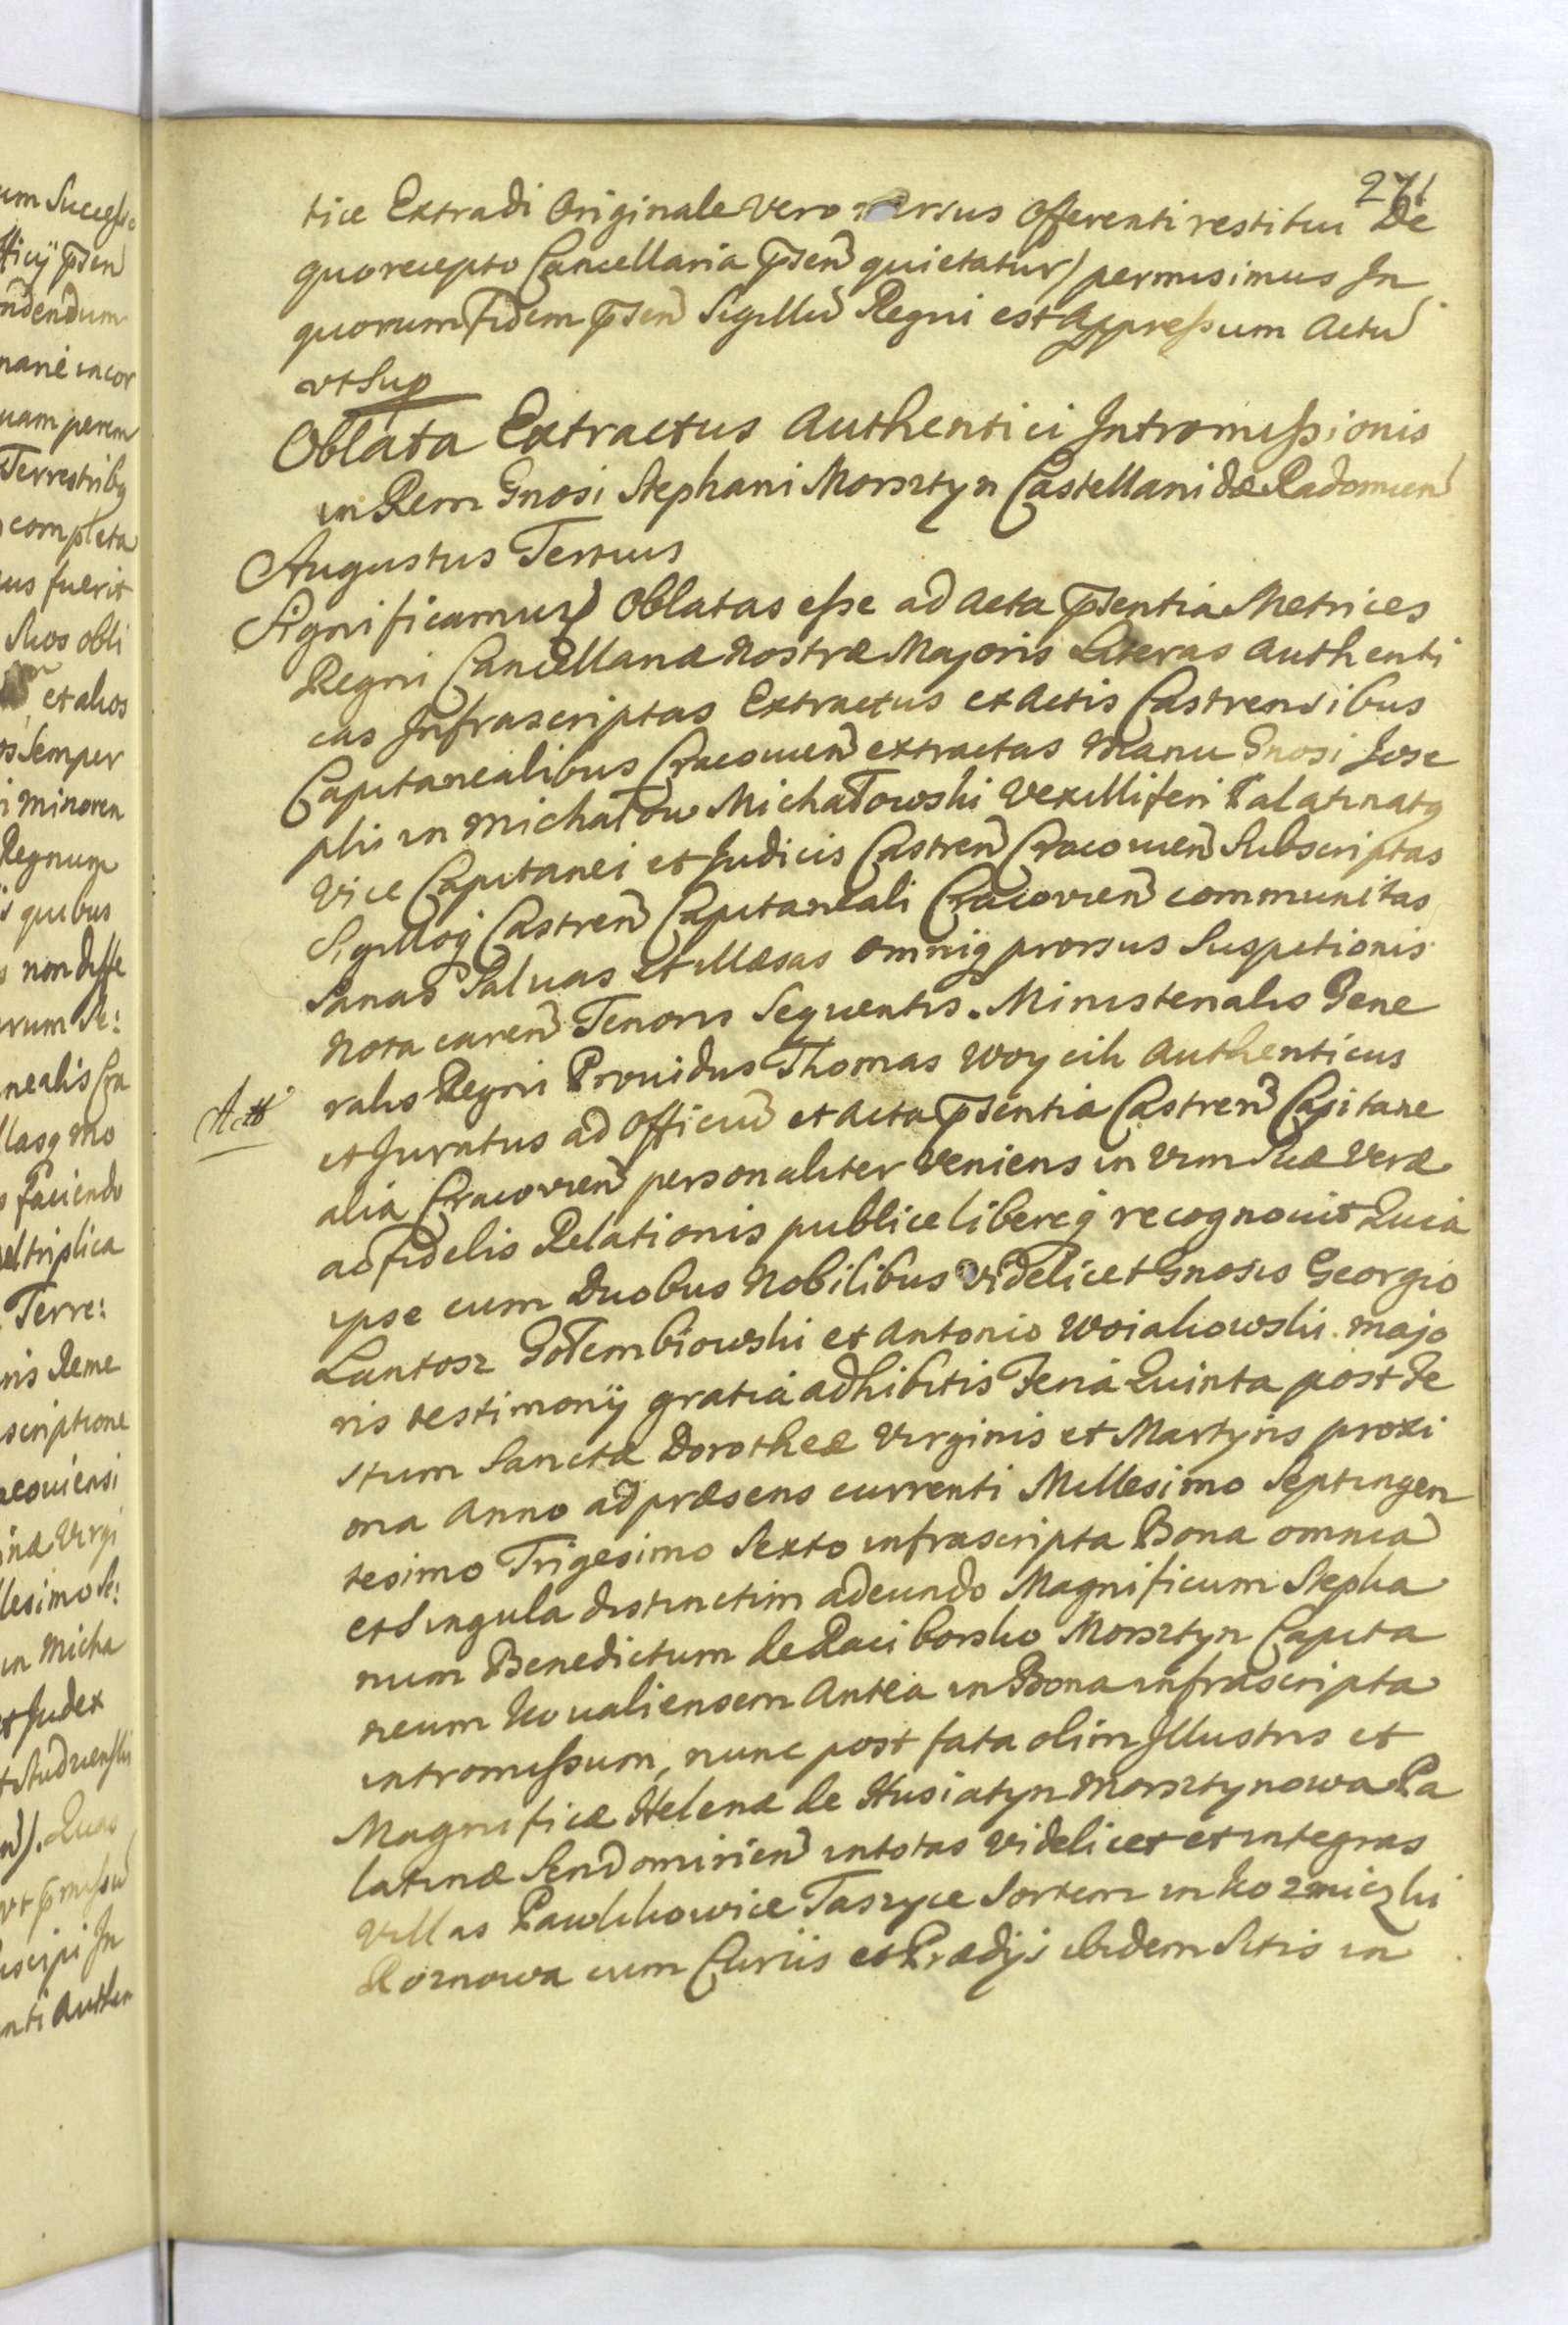 271
tice Extradi Originale vero rursus Offerenti restitui De
quo recepto Cancellaria p̃sen̄ quietatur) permisimus In
quorum Fidem p̃sen̄ Sigillũ Regni est Appressum Actũ
vt Sup
Oblata Extractus Authentici Intromissionis
in Rem Gnosi Stephani Morsztyn Castellani de Radomien̄
Augustus Tertius
Significamus) Oblatas esse ad Acta p̃sentia Metrices
Regni Cancellariæ Nostræ Majoris Literas Authenti
cas Infrascriptas Extractus ex Actis Castrensibus
Capitanealibus Cracovien̄ extractas Manu Gnosi Jose
phi in Michałow Michałowski Vexilliferi Palatinatq
Vice Capitanei et Judicis Castren̄ Cracovien̄ Subscriptas
Sigilloq Castren̄ Capitaneali Cracovien̄ communitas
Sanas Salvas et Illæsas omniq prorsus Suspetionis
Nota caren̄ Tenoris Sequentis. Ministerialis Gene
ralis Regni Providus Thomas Woycik Authenticus
et Juratus ad Officiũ et Acta p̃sentia Castren̄ Capitane
alia Cracovien̄ personaliter Veniens in Vim Suæ Veræ
ac fidelis Relationis publice libereq recognovit Quia
ipse cum Duobus Nobilibus videlicet Gnosis Georgio
Lantosz Gołembiowski et Antonio Woiakowski majo
ris testimonij gratia adhibitis Feria Quinta post Fe
stum Sanctæ Dorotheæ Virginis et Martyris proxi
ma Anno ad præsens currenti Millesimo Septingen
tesimo Trigesimo Sexto infrascripta Bona omnia
et Singula distinctim adeundo Magnificum Stepha
num Benedictum de Raciborsko Morsztyn Capita
neum Kovaliensem Antea in Bona infrascripta
intromissum, nunc post fata olim Illustris et
Magnificæ Helenæ de Husiatyn Morsztynowa Pa
latinæ Sendomirien̄ in totas videlicet et integras
Villas Pawlikowice Taszyce Sortem in Kozmiczki
Roznowa cum Curiis et Prædijs ibidem Sitis in